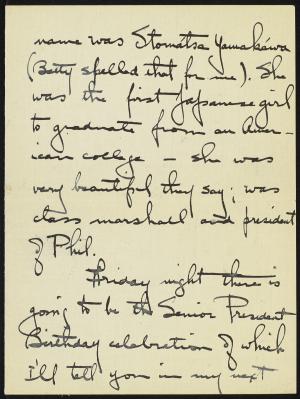 name was Stomatsa Yamakáwa
(Betty spelled that for me). She
was the first Japanese girl
to graduate from an Amer-
ican college – she was
very beautiful they say; was
class marshall and president
of Phil.
Friday night there is
going to be the Senior President
Birthday celebration of which
I'll tell you in my next